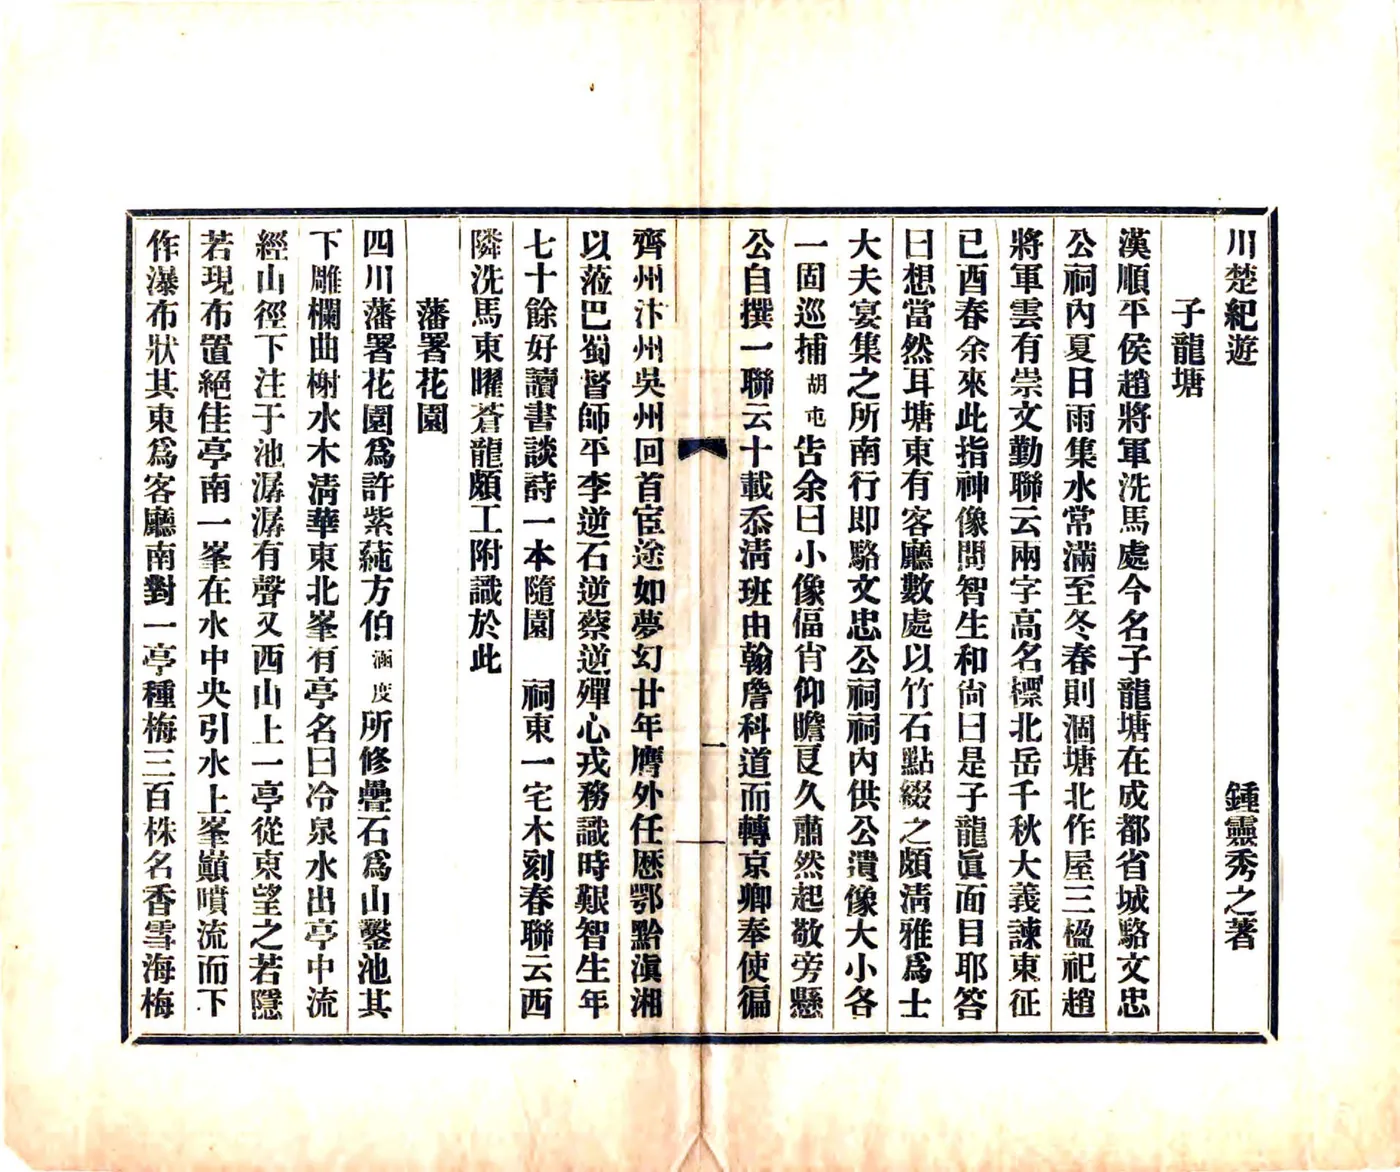 川楚紀遊　　　　　　　　　　　　鍾靈秀之著
子龍塘
漢順平侯趙將軍洗馬處今名子龍塘在成都省城駱文忠
公祠內夏日雨集水常滿至冬春則涸塘北作屋三楹祀趙
將軍雲有崇文勤聯云兩字高名標北岳千秋大義諫東征
已酉春余來此指神像問智生和尙曰是子龍眞面目耶答
曰想當然耳塘東有客廳數處以竹石點綴之頗淸雅爲士
大夫宴集之所南行卽駱文忠公祠祠內供公遺像大小各
一固巡捕胡屯告余曰小像偪肖仰瞻良久肅然起敬旁懸
公自撰一聯云十載忝淸班由翰詹科道而轉京卿奉使徧
一
齊州汴州吳州回首宦途如夢幻廿年膺外任歷鄂黔滇湘
以蒞巴蜀督師平李逆石逆蔡逆殫心戎務識時艱智生年
七十餘好讀書談詩一本隨園　祠東一宅木刻春聯云西
隣洗馬東曜蒼龍頗工附識於此
藩署花園
四川藩署花園爲許紫蒓方伯涵度所修疊石爲山鑿池其
下雕欄曲榭水木淸華東北峯有亭名曰冷泉水出亭中流
經山徑下注于池潺潺有聲又西山上一亭從東望之若隱
若現布置絕佳亭南一峯在水中央引水上峯巓噴流而下
作瀑布狀其東爲客廳南對一亭種梅三百株名香雪海梅